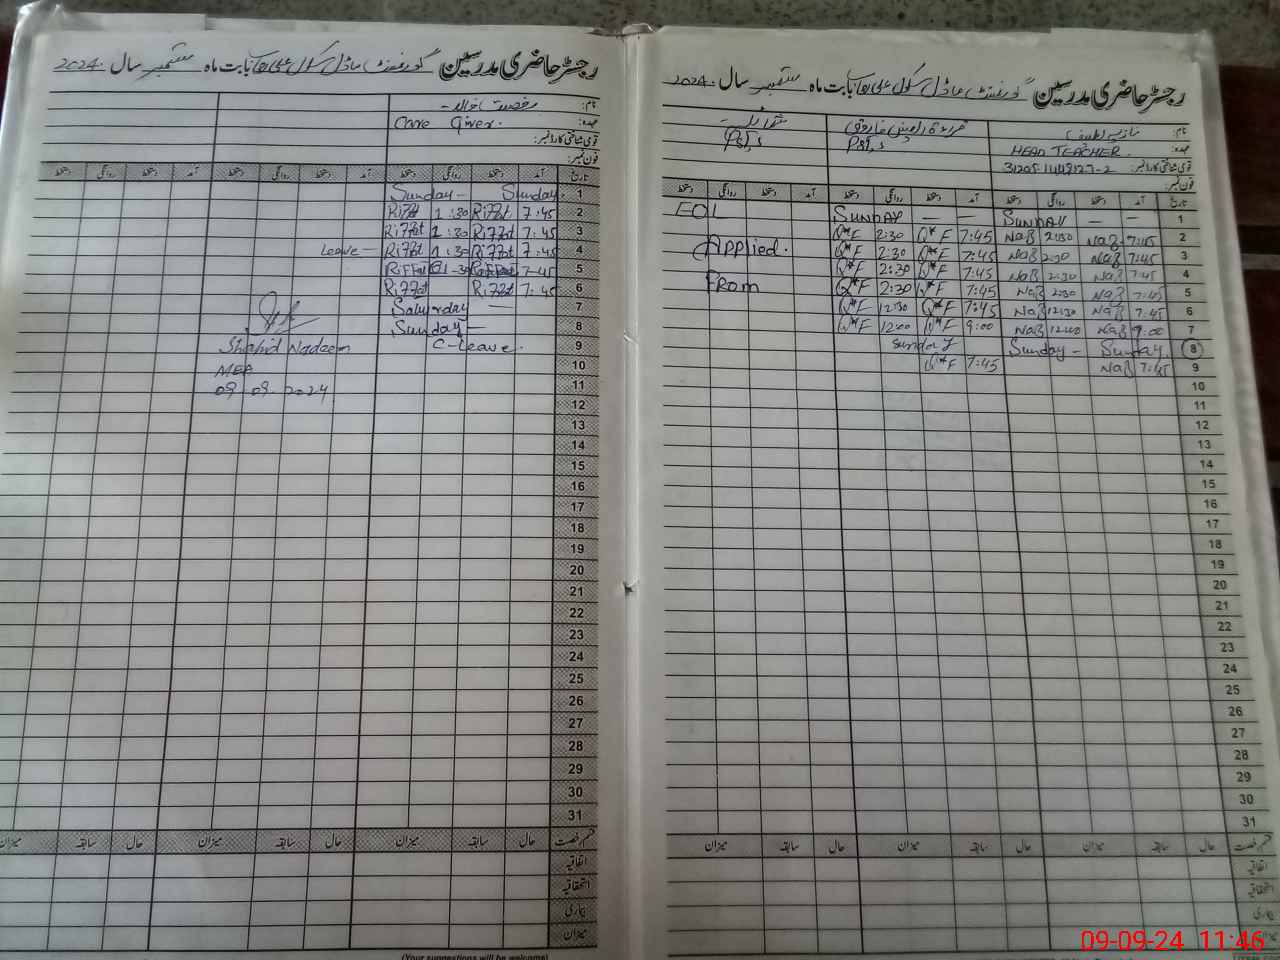 رجسٹر حاضری مدرسین گورنمنٹ ماڈل سکول بابت ماہ ستمبر سال 2024
نام:
عہدہ: Care Giver.
قومی شناختی کارڈ نمبر:
فون نمبر:
تاریخ آمد دستخط روانگی دستخط آمد دستخط روانگی دستخط آمد دستخط روانگی دستخط
1 Sunday - Sunday.
2 7:45 Riffat 1:30 Riffat
3 7:45 Riffat 1:30 Riffat
4 7:45 Riffat 1:30 Riffat Leave -
5 7-45 1-30 Riffat
6 7:45 Riffat Riffat
7 Saturday
8 Sunday -
9 C-Leave. Shahid Nadeem
10 MEA
11 09-09-2024
12
13
14
15
16
17
18
19
20
21
22
23
24
25
26
27
28
29
30
31
قسم رخصت حال سابقہ میزان حال سابقہ میزان حال سابقہ میزان
اتفاقیہ
استحقاقیہ
بیماری
میزان
(Your suggestions will be welcome)
رجسٹر حاضری مدرسین گورنمنٹ ماڈل سکول بابت ماہ ستمبر سال 2024
نام: نازیہ لطیف
عہدہ: HEAD TEACHER. PST,s PST,s
قومی شناختی کارڈ نمبر:
فون نمبر:
تاریخ آمد دستخط روانگی دستخط آمد دستخط روانگی دستخط آمد دستخط روانگی دستخط
1 SUNDAY - - SUNDAY - - EOL
2 7:45 Naz 2:30 Naz 7:45 Q*F 2:30 Q*F
3 7:45 Naz 2:30 Naz 7:45 Q*F 2:30 Q*F Applied.
4 7:45 Naz 2:30 Naz 7:45 Q*F 2:30 Q*F
5 7:45 Naz 2:30 Naz 7:45 Q*F 2:30 Q*F From
6 7:45 Naz 12:30 Naz 7:45 Q*F 12:30 Q*F
7 9:00 Naz 12:00 Naz 9:00 Q*F 12:00 Q*F
8 Sunday - Sunday. Sunday
9 7:45 Naz 7:45 Q*F
10
11
12
13
14
15
16
17
18
19
20
21
22
23
24
25
26
27
28
29
30
31
قسم رخصت حال سابقہ میزان حال سابقہ میزان حال سابقہ میزان
اتفاقیہ
استحقاقیہ
بیماری
میزان
09-09-24 11:46